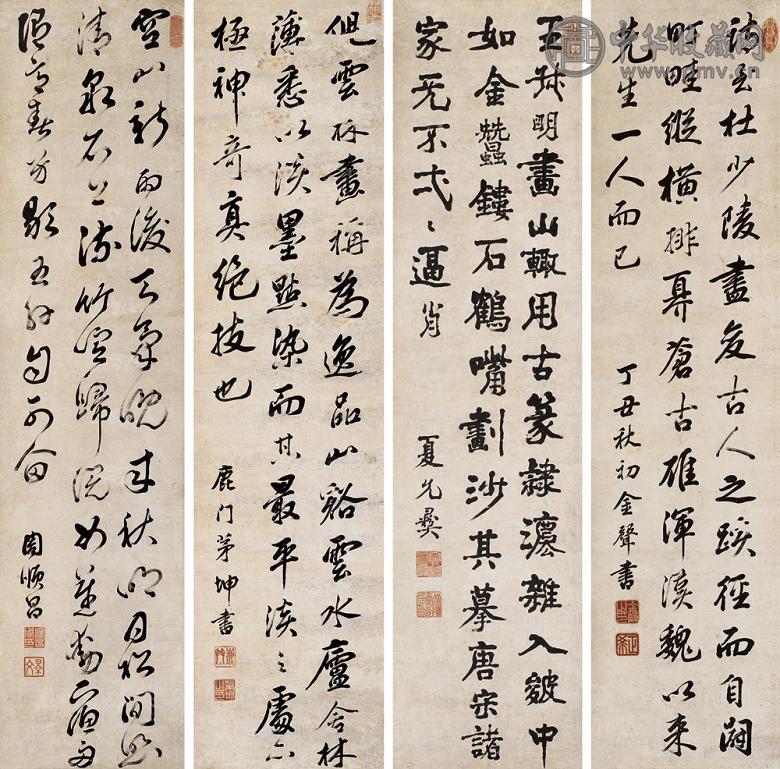 詩至杜少陵盡變古人之蹊徑而自闢
町畦縱橫排奡蒼古雄渾漢魏以來
先生一人而已
丁丑秋初金聲書
王叔明畫山輒用古篆隸灋雜入皴中
如金蠶鏤石鶴嘴劃沙其摹唐宋諸
家无不弌〻逼肖
夏允彝
倪雲林畫稱為逸品山谿雲水廬舍林
薄悉以淡墨點染而其最平淡之處亦
極神奇真絕技也
鹿门茅坤書
空山新雨後天氣晚來秋明月松間照
清泉石上流竹喧歸浣女蓮動下漁舟
隨意春芳歇王孫自可留
周順昌
中华收藏网